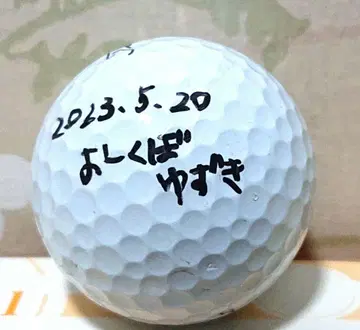 2023.5.20
よしくば
ゆずき